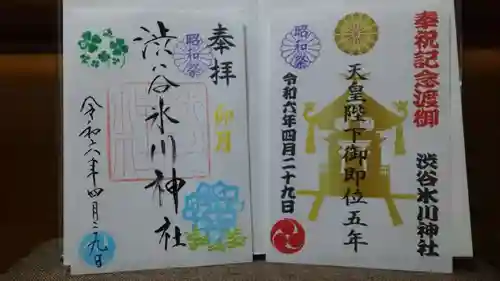 奉祝記念渡御
渋谷氷川神社
天皇陛下御即位五年
昭和祭
令和六年四月二十九日
奉拝
卯月
昭和祭
渋谷氷川神社
令和六年四月二九日